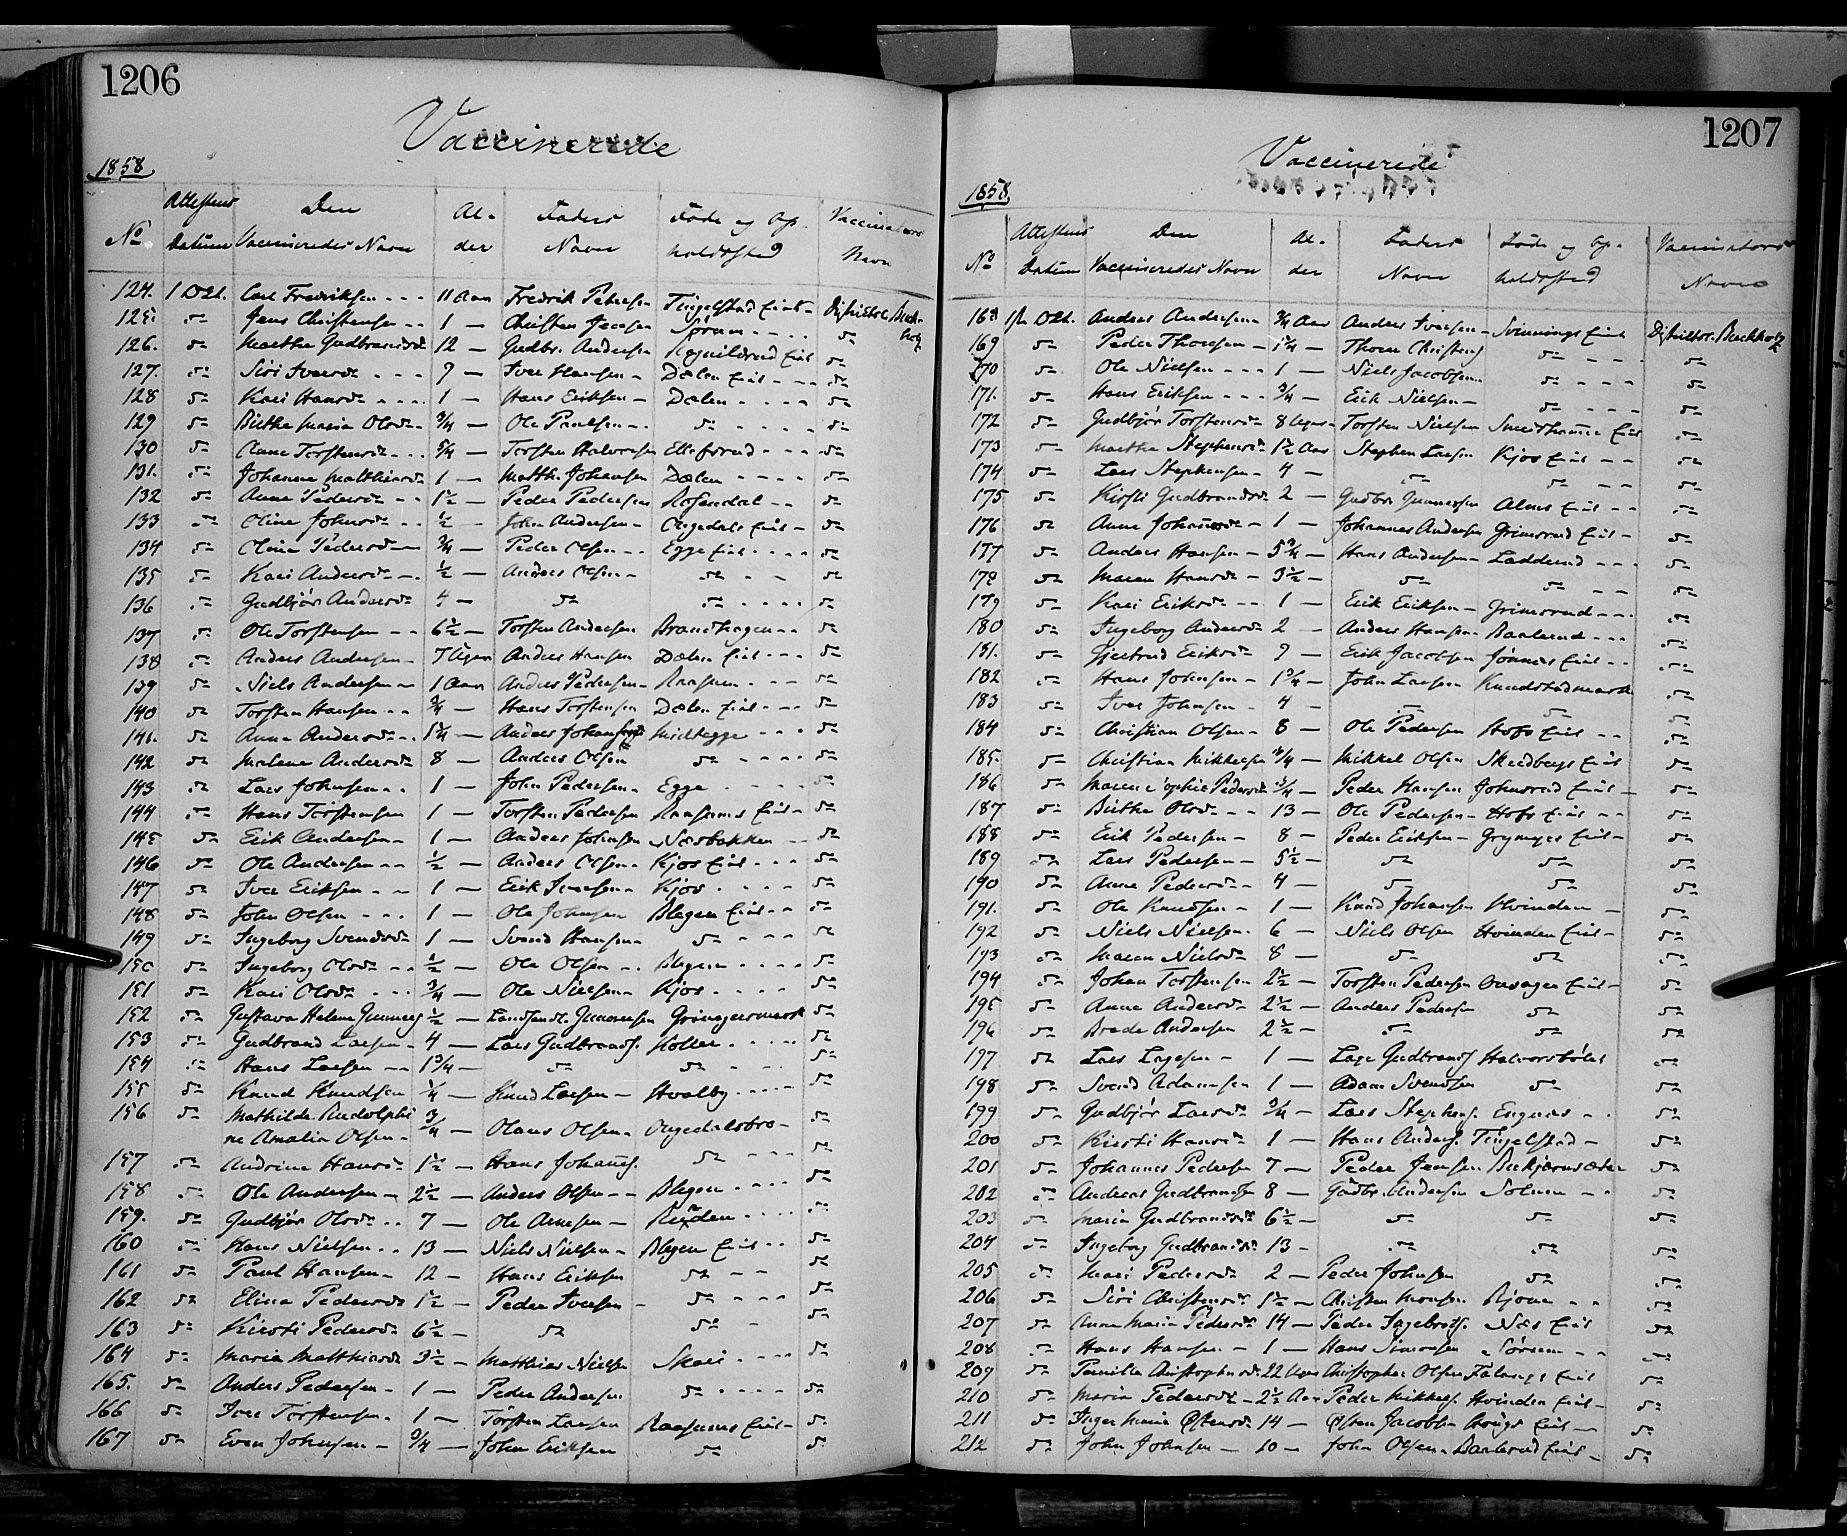 1206
Vaccinerede
1858
No
Attestens Datum
Den Vaccineredes Navn
Alder
Faders Navn
Føde og Opholdssted
Vaccinateurs Navn
124. 1 Oct. Carl Fredriksen - - - 11 Aar Fredrik Petersen Tingelstad Eiet - Distriktsl. Buchholz
125. do Jens Christensen - - 1 - Christen Jensen Sørum - - - do
126. do Marthe Gudbrandsd. 12 - Gudbr. Andersen Røgnildrud Eiet do
127. do Siri Iversd. - - - 9 - Iver Hansen - Dælen Eiet - - - do
128 do Kari Hansd. - - - 1 - Hans Eriksen - Dælen - - - do
129 do Birthe Maria Olsd. - 3/4 - Ole Paulsen - - do - - - do
130 do Anne Torstensd. - - 5/4 - Torsten Halvorsen Ellefsrud - - - do
131. do Johanne Matthisd. 1 - Matth. Johansen Dælen - - - do
132 do Anne Pedersd. - - 1½ - Peder Pedersen Rosendal - - do
133 do Oline Johnsd. - - ½ - John Andersen - Ongedals Eiet - do
134 do Olina Pedersd. - 3/4 - Peder Olsen - - Egge Eiet - - - do
135 do Kari Andersd. - ½ - Anders Olsen - do - - do
136 do Gudbjør Andersd. 4 - do do - - - do
137 do Ole Torstensen - - 6½ - Torsten Andersen Brandhagen - - do
138 do Anders Andersen - 7 Uger Anders Hansen Dælen Eiet - - - do
139 do Niels Andersen - 1 Aar Anders Pedersen - Raasum - - - do
140 do Torsten Hansen - - 3/4 - Hans Torstensen Dælen Eiet - - - do
141. do Anne Andersd. - - 1¼ - Anders Johansen Midtegge - - - do
142 do Malene Andersd. 8 - Anders Olsen do - - - do
143 do Lars Johnsen - - 1 - John Pedersen - Egge - - - do
144 do Hans Torstensen 1 - Torsten Pedersen Raasums Eiet - do
145 do Erik Andersen - 1 - Anders Johnsen Næsbakken - - do
146 do Ole Andersen - - ½ - Anders Olsen - Kjos Eiet - - - do
147 do Iver Eriksen - - 1 - Erik Iversen - Kjos - - - do
148 do John Olsen - - - 1 - Ole Johnsen Blegen Eiet - - do
149 do Ingeborg Svendsd. 1 - Svend Hansen - do - - - do
150 do Ingeborg Olsd. - - ½ - Ole Olsen - - Blegen - - - do
151 do Kari Olsd. - - - 3/4 - Ole Nielsen - Kjos - - - do
152 do Gustava Helene Gunners ½ - Landhandl. Gunnersen Grinagersmark do
153 do Gudbrand Larsen - 4 - Lars Gudbrands. Koller - - - do
154 do Hans Larsen - - 1¾ - do do - - - do
155 do Knud Knudsen ¼ - Knud Larsen - Hvalby - - - do
156 do Mathilde Rudolphi
ne Amalia Olsen - 3/4 - Olaus Olsen - Ongedalsbro - do
157 do Andrine Hansd. 1½ - Hans Johans. do - - - do
158 do Ole Andersen - 2½ - Anders Olsen - - Blegen - - - do
159. do Gudbjør Olsd. - - 7 - Ole Arnesen - Ruden - - - do
160 do Hans Nielsen - - 13 - Niels Nielsen - Blegen Eiet - - do
161 do Paul Hansen - 12 - Hans Eriksen do - - do
162 do Elina Pedersd. 1½ - Peder Iversen - do - - - do
163 do Kirsti Pedersd. 6½ - do do - do
164 do Maria Matthisd. 3½ - Matthias Nielsen Skari - - - do
165. do Anders Pedersen - 1 - Peder Andersen do - - - do
166 do Iver Torstensen - 1 - Torsten Larsen Raasums Eiet - do
167 do Even Johnsen - 3/4 - John Eriksen do do
1207
Vaccinerede
1858
No
Attestens Datum
Den Vaccineredes Navn
Alder
Faders Navn
Føde og Opholdssted
Vaccinateurs Navn
168 1 Oct. Anders Andersen - 3/4 Aar Anders Iversen - Svinnings Eiet Distriktsl. Buchholz
169 do Peder Thoresen - 1¼ - Thore Christens. do - - - do
170 do Ole Nielsen - - - 1 - Niels Jacobsen - do - - - do
171. do Hans Eriksen - - - 3/4 - Erik Nielsen - do - - - do
172 do Gudbjør Torstensd. 8 Uger - Torsten Nielsen Smedshaune Eiet do
173 do Marthe Stephensd. 1½ Aar Stephen Larsen Kjos Eiet - - do
174 do Lars Stephensen - 4 - do do - - do
175 do Kirsti Gudbrandsd. 2 - Gudbr. Gunnersen Alms Eiet - - do
176 do Anne Johannesd. - 1 - Johannes Andersen Grimsrud Eiet - do
177 do Anders Hansen - 5¾ - Hans Andersen - Ladderud - - - do
178 do Maren Hansd. - 3½ - do do - - - do
179 do Kari Eriksd. - - 1 - Erik Eriksen - Grimsrud - - - do
180 do Ingeborg Andersd. 2 - Anders Hansen - Baalerud - - - do
181. do Gjertrud Eriksd. 9 - Erik Jacobsen Jønnes Eiet - - do
182 do Hans Johnsen - 1¾ - John Larsen Knudstadmark do
183 do Iver Johnsen - 4 - do do do
184 do Christian Olsen - 8 - Ole Pedersen Hofs Eiet - - do
185. do Christian Mikkelsen 3/4 - Mikkel Olsen Skedbergs Eiet do
186 do Maren Sophie Pedersd. 3/4 - Peder Hansen Johnsrud Eiet - do
187 do Birthe Olsd. - - 13 - Ole Pedersen - Hofs Eiet - - do
188 do Erik Pedersen - 8 - Peder Eriksen - Gryngs Eiet - do
189 do Lars Pedersen - 5½ - do do do
190 do Anne Pedersd. - 4 - do do do
191. do Ole Knudsen - 1 - Knud Johansen Hvinden - do
192 do Niels Nielsen - 6 - Niels Olsen Hvinden Eiet - do
193 do Maren Nielsd. 8 - do do do
194 do Johan Torstensen 2½ - Torsten Pedersen Onsager Eiet - do
195 do Anne Andersd. 2½ - Anders Pedersen do do
196 do Brede Andersen 2½ - do do do
197 do Lars Lagesen - 1 - Lage Gudbrands. Halvorsbølet do
198 do Svend Adamsen 1 - Adam Svendsen do do
199 do Gudbjør Larsd. 3/4 - Lars Stephens. Engnæs - - do
200 do Kirsti Hansd. 1 - Hans Anders. Tingelstad - do
201 do Johannes Pedersen 7 - Peder Jensen Berkjernsæter do
202 do Andreas Gudbrands. 8 - Gudbr. Andersen Solum - - do
203 do Maria Gudbrandsd. 6½ - do do do
204 do Ingeborg Gudbrandsd. 13 - do do do
205 do Mari Pedersd. 2 - Peder Johnsen do do
206 do Siri Christensd. 1½ - Christen Monsen Rjone - - do
207 do Anne Maria Pedersd. 14 - Peder Ingebrets. Næs Eiet do
208 do Hans Hansen - 1 - Hans Simonsen Sørum - - do
209 do Pernille Christophersd. 22 Uger Christopher Olsen Falangs Eiet do
210 do Maria Pedersd. - 2½ Aar Peder Mikkels. Hvinden Eiet - do
211 do Inger Maria Østensd. 14 - Østen Jacobsen Eiet - do
212 do John Johnsen - 10 - John Olsen - Baalerud Eiet - do